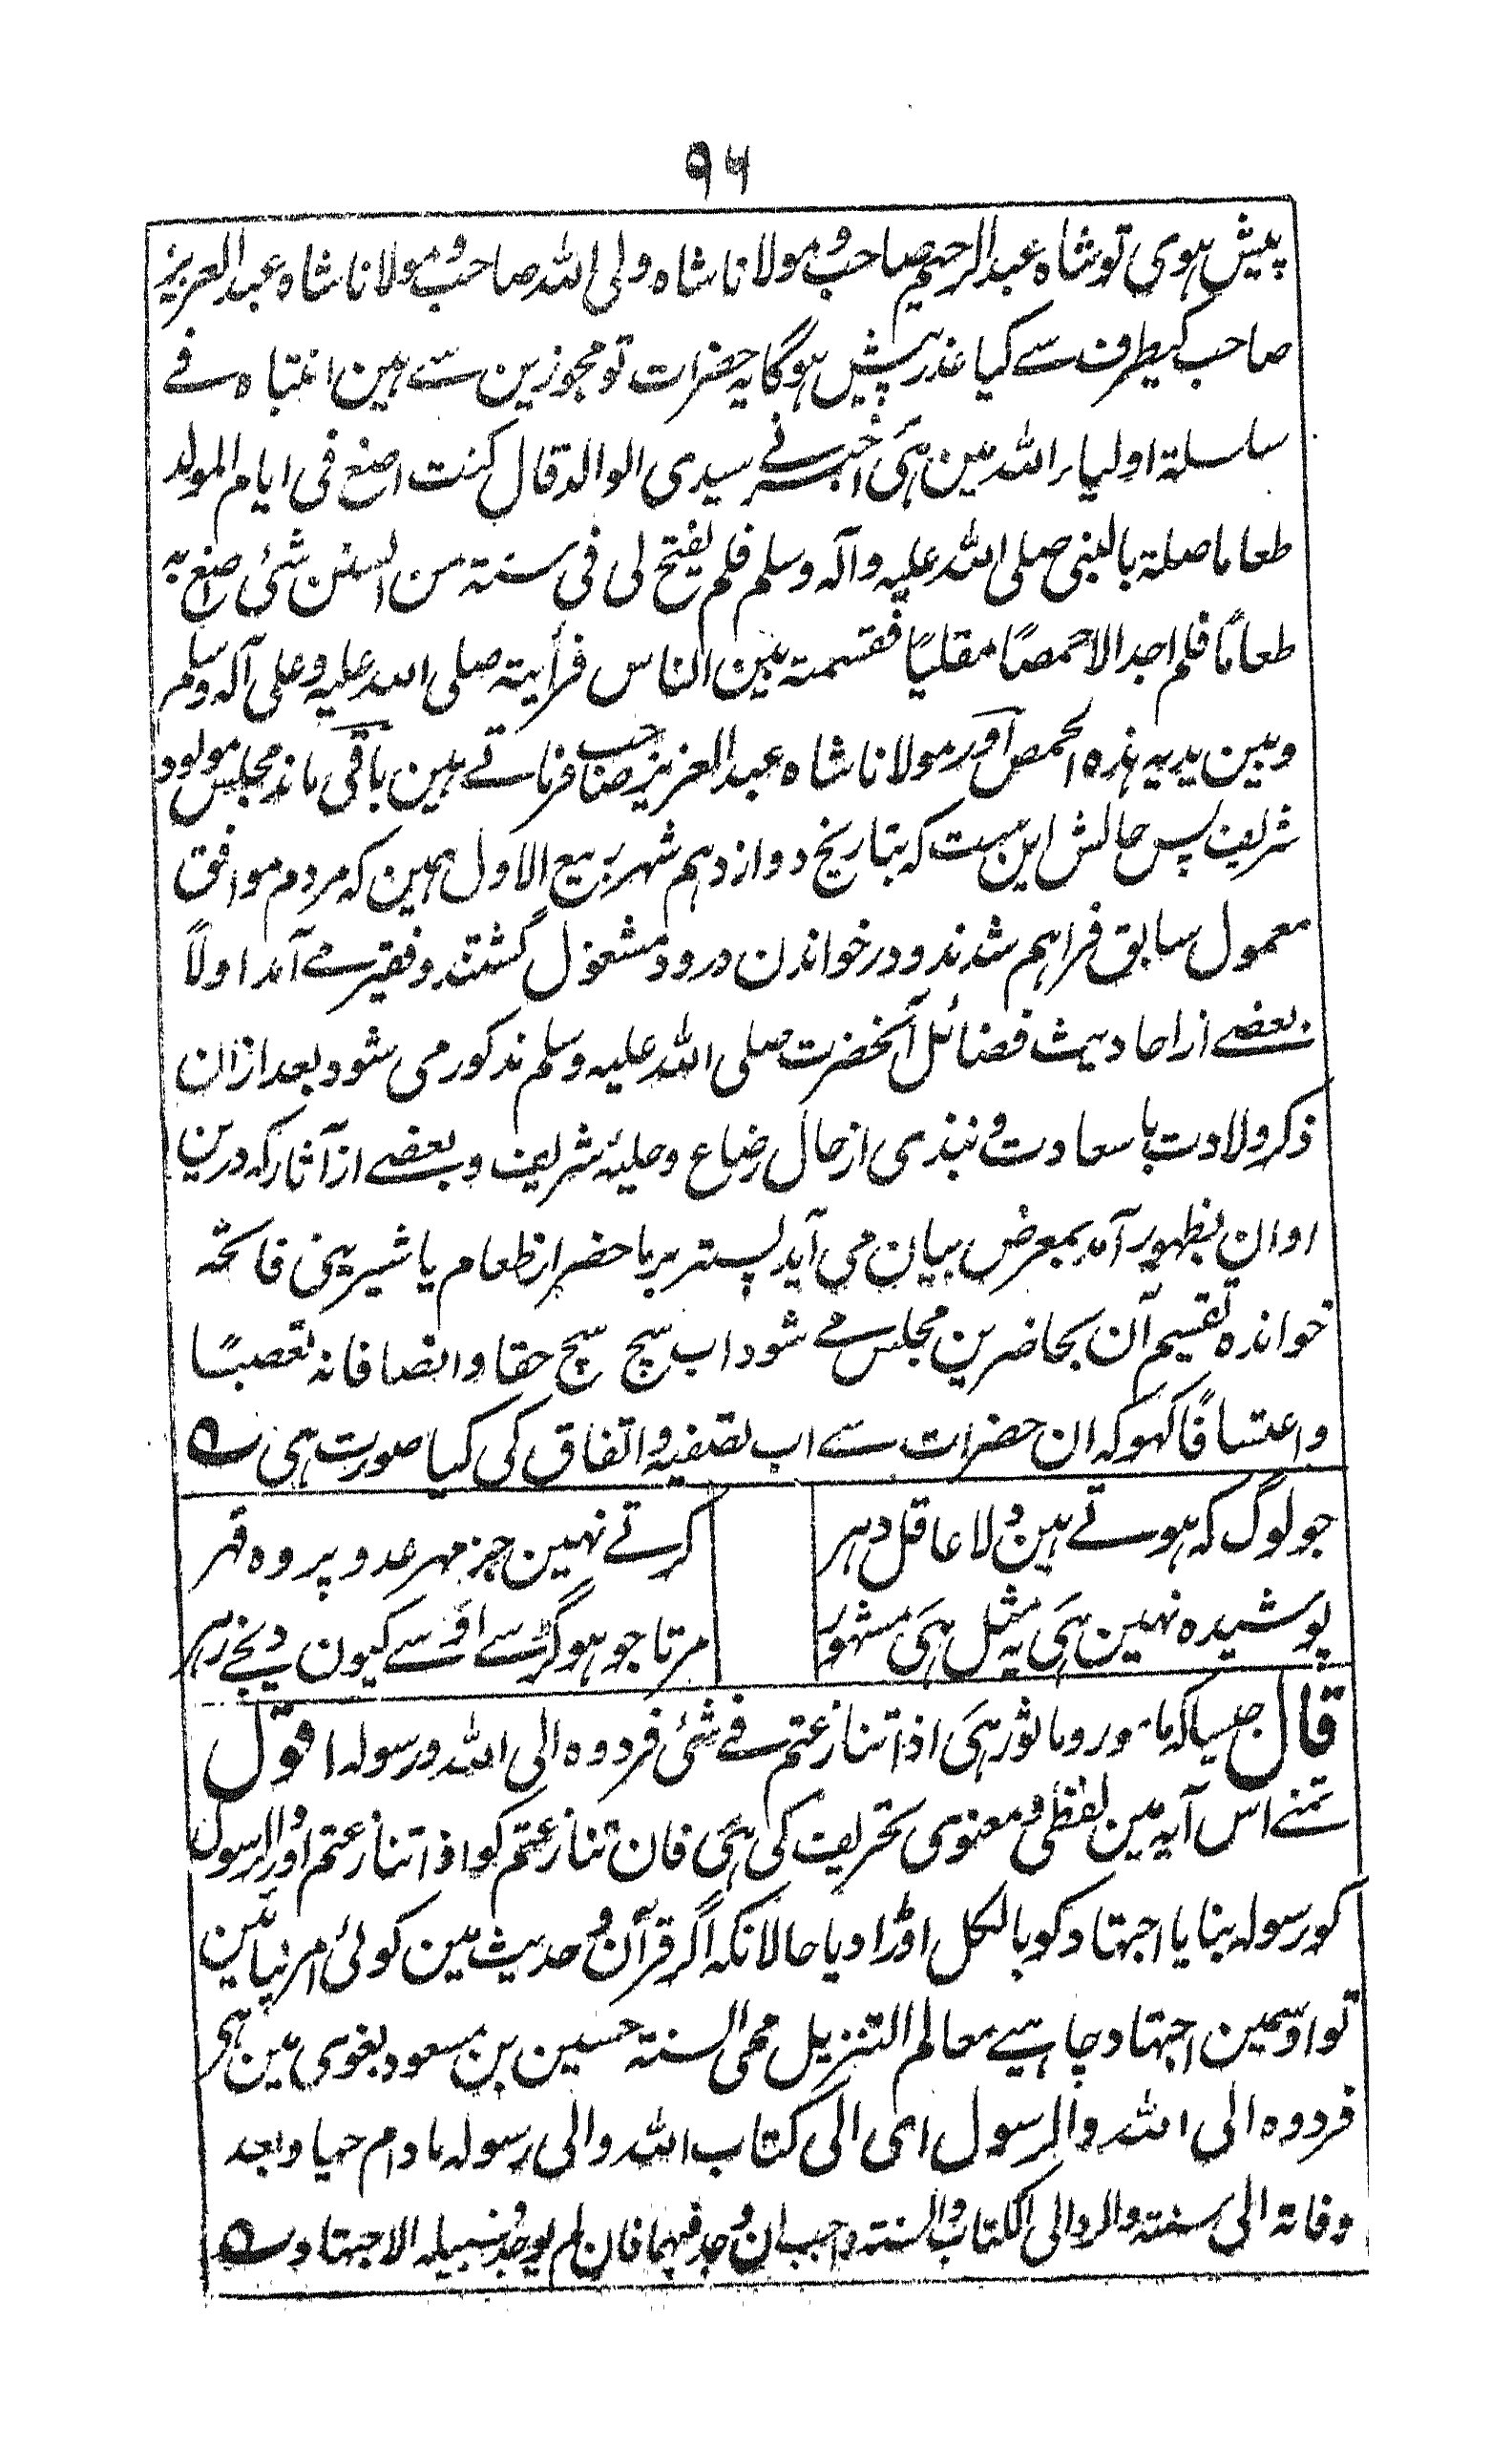 ۹۶
پیش ہوی تو شاہ عبدالرحیم صاحب و مولانا شاہ ولی اللہ صاحب و مولانا شاہ عبدالعزیز
صاحب کیطرف سے کیا عذر پیش ہوگا یہ حضرات تو مجوزین سے ہین انتباہ فے
سلسلۃ اولیاء اللہ مین ہی اخبرنے سیدی الوالد قال کنت اصنع فی ایام المولد
طعاما صلۃ بالنبی صلی اللہ علیہ وآلہ وسلم فلم یفتح لی فی سنتہ من السنن شئی اصنع بہ
طعامًا فلم اجد الا حمصًا مقلیًا فقسمتہ بین الناس فرأیتہ صلی اللہ علیہ وعلی آلہ وسلم
وبین یدیہ ہذہ الحمص اور مولانا شاہ عبدالعزیز صاحب فرماتے ہین باقی ماند مجلس مولود
شریف پس حالش این ست کہ بتاریخ دوازدہم شہر ربیع الاول ہمین کہ مردم موافق
معمول سابق فراہم شدند و در خواندن درود مشغول گشتند و فقیر مے آمد اولًا
بعضے از احادیث فضائل آنحضرت صلی اللہ علیہ وسلم مذکور می شود بعد ازان
ذکر ولادت با سعادت و نبذی از حال رضاع و حلیۂ شریف و بعضے از آثار کہ درین
اوان بظہور آمد بمعرض بیان می آید پستر بر ما حضر از طعام یا شیرینی فاتحہ
خواندہ تقسیم آن بحاضرین مجلس مے شود اب سچ سچ حقا و انصافا نہ تعصبًا
و اعتسافًا کہو کہ ان حضرات سے اب تصفیہ و اتفاق کی کیا صورت ہی ؎
جو لوگ کہ ہوتے ہین دلا عاقل دہر کرتے نہین جز مہر عدو پر وہ قہر
پوشیدہ نہین ہی یہ مثل ہی مشہور مرتا جو ہو گڑ سے اوسے کیون دیجے زہر
قال جیسا کہ مامور و ماثور ہی اذا تنازعتم فے شئی فردوہ الی اللہ ورسولہ اقول
تمنے اس آیہ مین لفظی و معنوی تحریف کی ہی فان تنازعتم کو اذا تنازعتم اور والرسول
کو رسولہ بنایا اجتہاد کو بالکل اوڑا دیا حالانکہ اگر قرآن و حدیث مین کوئی امر نپائین
تو اوسمین اجتہاد چاہیے معالم التنزیل محی السنتہ حسین بن مسعود بغوی مین ہی
فردوہ الی اللہ والرسول ای الی کتاب اللہ والی رسولہ مادام حیا و بعد
وفاتہ الی سنتہ والرد الی الکتاب والسنتہ واجب ان وجد فیہما فان لم یوجد فسبیلہ الاجتہاد ؎